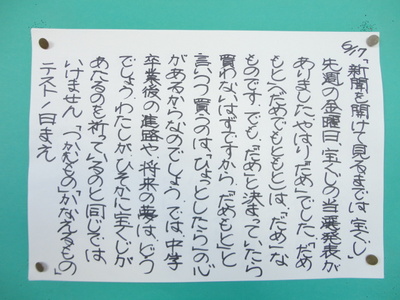 6/17「新聞を開けて見るまでは宝くじ」
先週の金曜日、宝くじの当選発表が
ありました。やはり「だめ」でした。「だめ
もと」「だめでもともと」は、「だめ」な
ものです。でも、「だめ」と決まっていたら
買わないはずですから、「だめもと」と
言いつつ買うのは、「ひょっとしたら」の心
があるからなのでしょう。では、中学
卒業後の進路や、将来の夢は、どう
でしょう。わたしが、ひそかに宝くじが
あたるのを祈っているのと同じでは、
いけません。「つかむもの」「かなえるもの」
テスト1日まえ